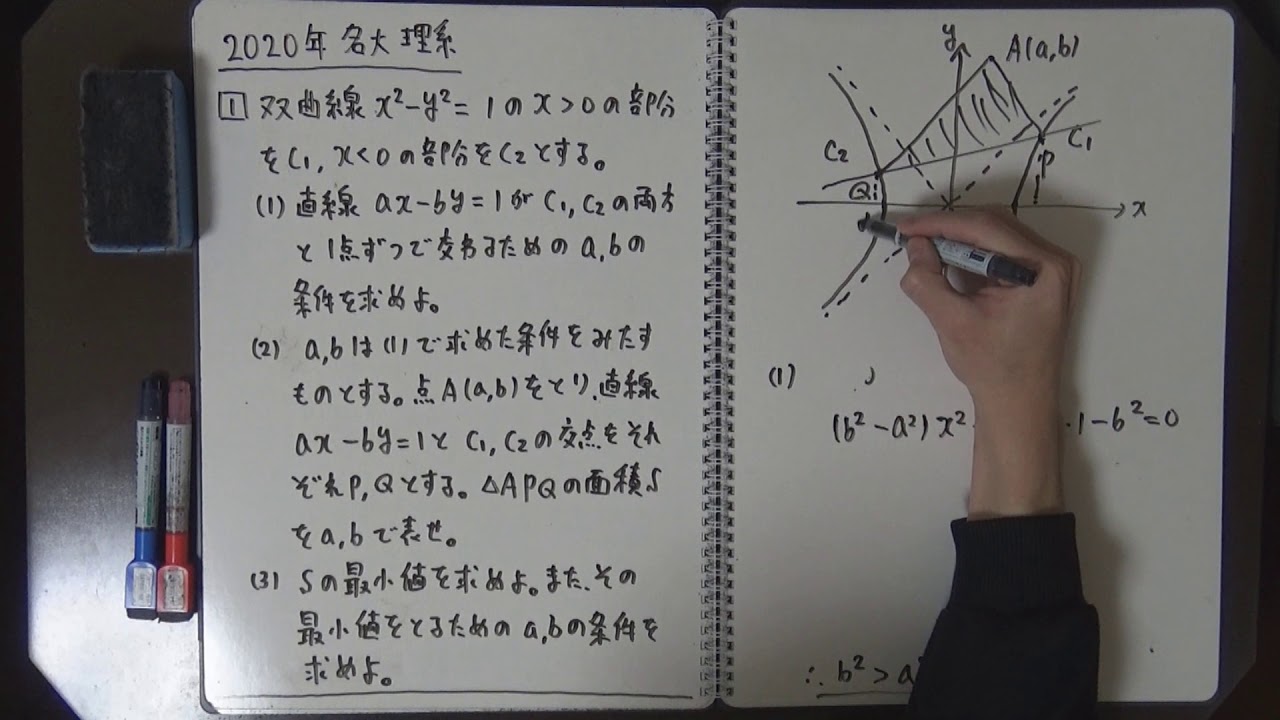 2020年 名大 理系
1 双曲線 x²-y²=1のx>0の部分
をC₁, x<0の部分をC₂とする。
(1) 直線 ax-by=1が C₁, C₂の両方
と1点ずつで交わるための a,bの
条件を求めよ。
(2) a,bは(1)で求めた条件をみたす
ものとする。点A(a,b)をとり、直線
ax-by=1と C₁, C₂の交点をそれ
ぞれP,Qとする。△APQの面積S
をa,bで表せ。
(3) Sの最小値を求めよ。また、その
最小値をとるための a,bの条件を
求めよ。
y
A(a,b)
C₂
C₁
P
Q
x
(1)
(b²-a²)x²
·1-b²=0
∴ b²>a²